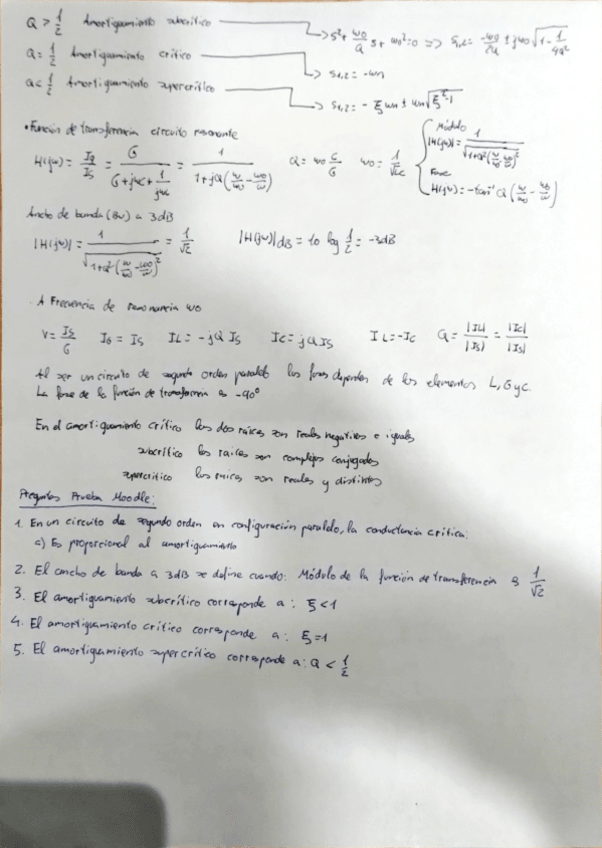 Q > 1/2 Amortiguamiento subcrítico → s² + ω0/Q s + ω0² = 0 => s1,2 = -ω0/2Q ± jω0 √(1 - 1/4Q²)
Q = 1/2 Amortiguamiento crítico → s1,2 = -ωn
Q < 1/2 Amortiguamiento supercrítico → s1,2 = -ξωn ± ωn√(ξ²-1)
• Función de transferencia circuito resonante
H(jω) = Ig/Is = G/(G + jωc + 1/jωc) = 1/(1 + jQ(ω/ω0 - ω0/ω)) Q = ω0 C/G ω0 = 1/√LC
Módulo
|H(jω)| = 1/√(1+Q²(ω/ω0 - ω0/ω)²)
Fase
H(jω) = -tan⁻¹ Q (ω/ω0 - ω0/ω)
Ancho de banda (Bw) a 3dB
|H(jω)| = 1/√(1+Q²(ω/ω0 - ω0/ω)²) = 1/√2 |H(jω)| dB = 10 log 1/2 = -3dB
. A Frecuencia de resonancia ω0
V = Is/G IG = Is IL = -jQ Is Ic = jQ Is IL = -Ic Q = |IL|/|Is| = |Ic|/|Is|
Al ser un circuito de segundo orden paralelo las fases dependen de los elementos L, G y C.
La fase de la función de transferencia es -90°
En el amortiguamiento crítico las dos raíces son reales negativas e iguales
subcrítico las raíces son complejas conjugadas
supercrítico las raíces son reales y distintas
Preguntas Prueba Moodle:
1. En un circuito de segundo orden en configuración paralelo, la conductancia crítica:
c) Es proporcional al amortiguamiento
2. El ancho de banda a 3dB se define cuando: Módulo de la función de transferencia es 1/√2
3. El amortiguamiento subcrítico corresponde a: ξ < 1
4. El amortiguamiento crítico corresponde a: ξ = 1
5. El amortiguamiento supercrítico corresponde a: Q < 1/2